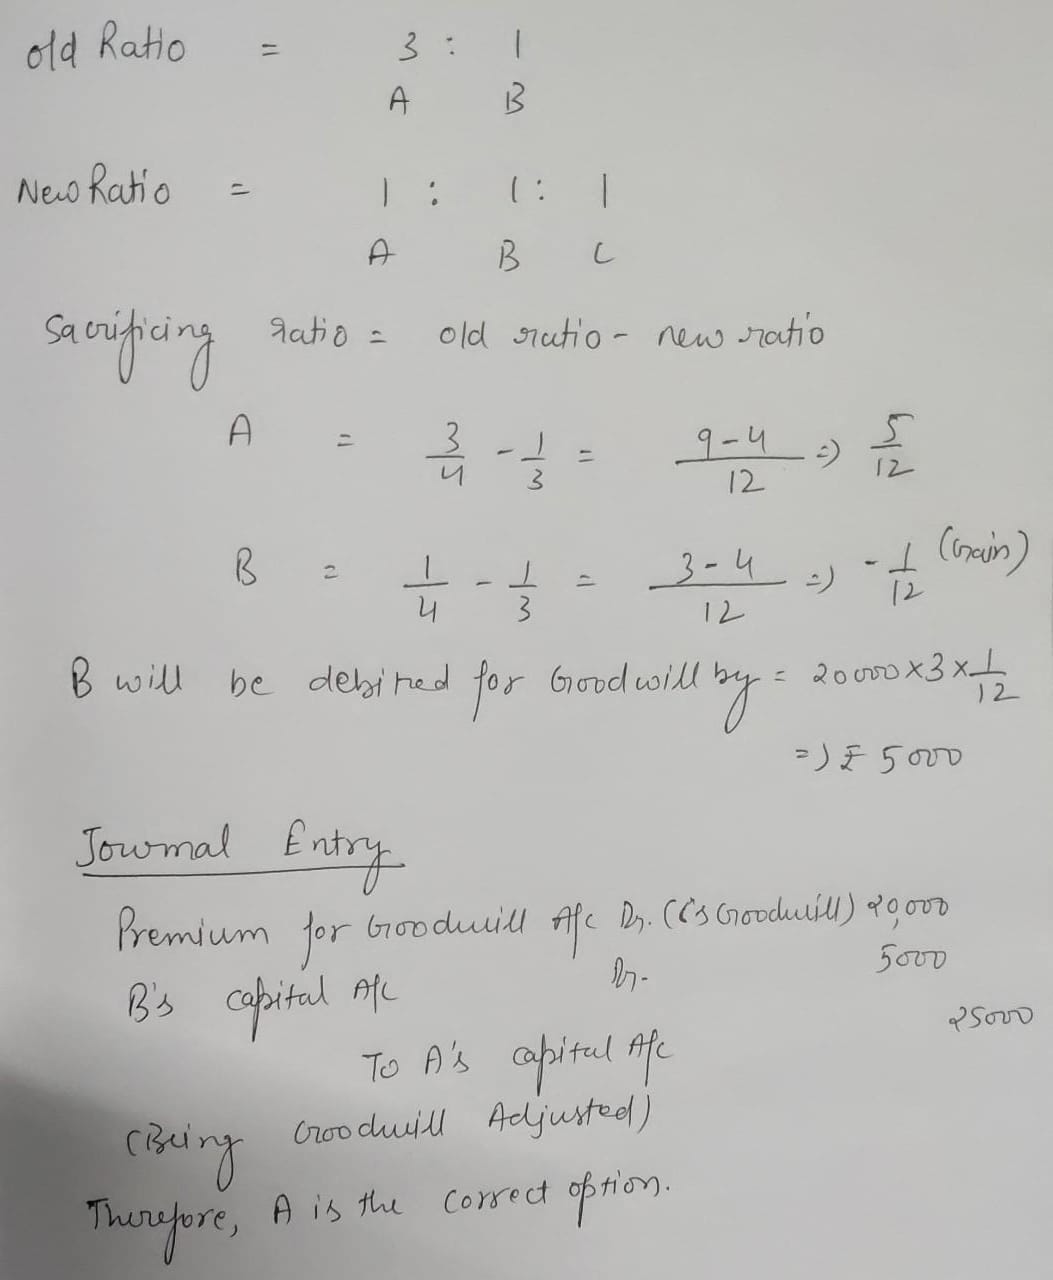 old Ratio = 3 : 1
A B
New Ratio = 1 : 1 : 1
A B C
Sacrificing ratio = old ratio - new ratio
A = 3/4 - 1/3 = 9-4/12 => 5/12
B = 1/4 - 1/3 = 3-4/12 => -1/12 (Gain)
B will be debited for Goodwill by = 20000 x 3 x 1/12
=) ₹ 5000
Journal Entry
Premium for Goodwill A/c Dr. (C's Goodwill) 20,000
B's capital A/c Dr. 5000
To A's capital A/c 25000
(Being Goodwill Adjusted)
Therefore, A is the correct option.